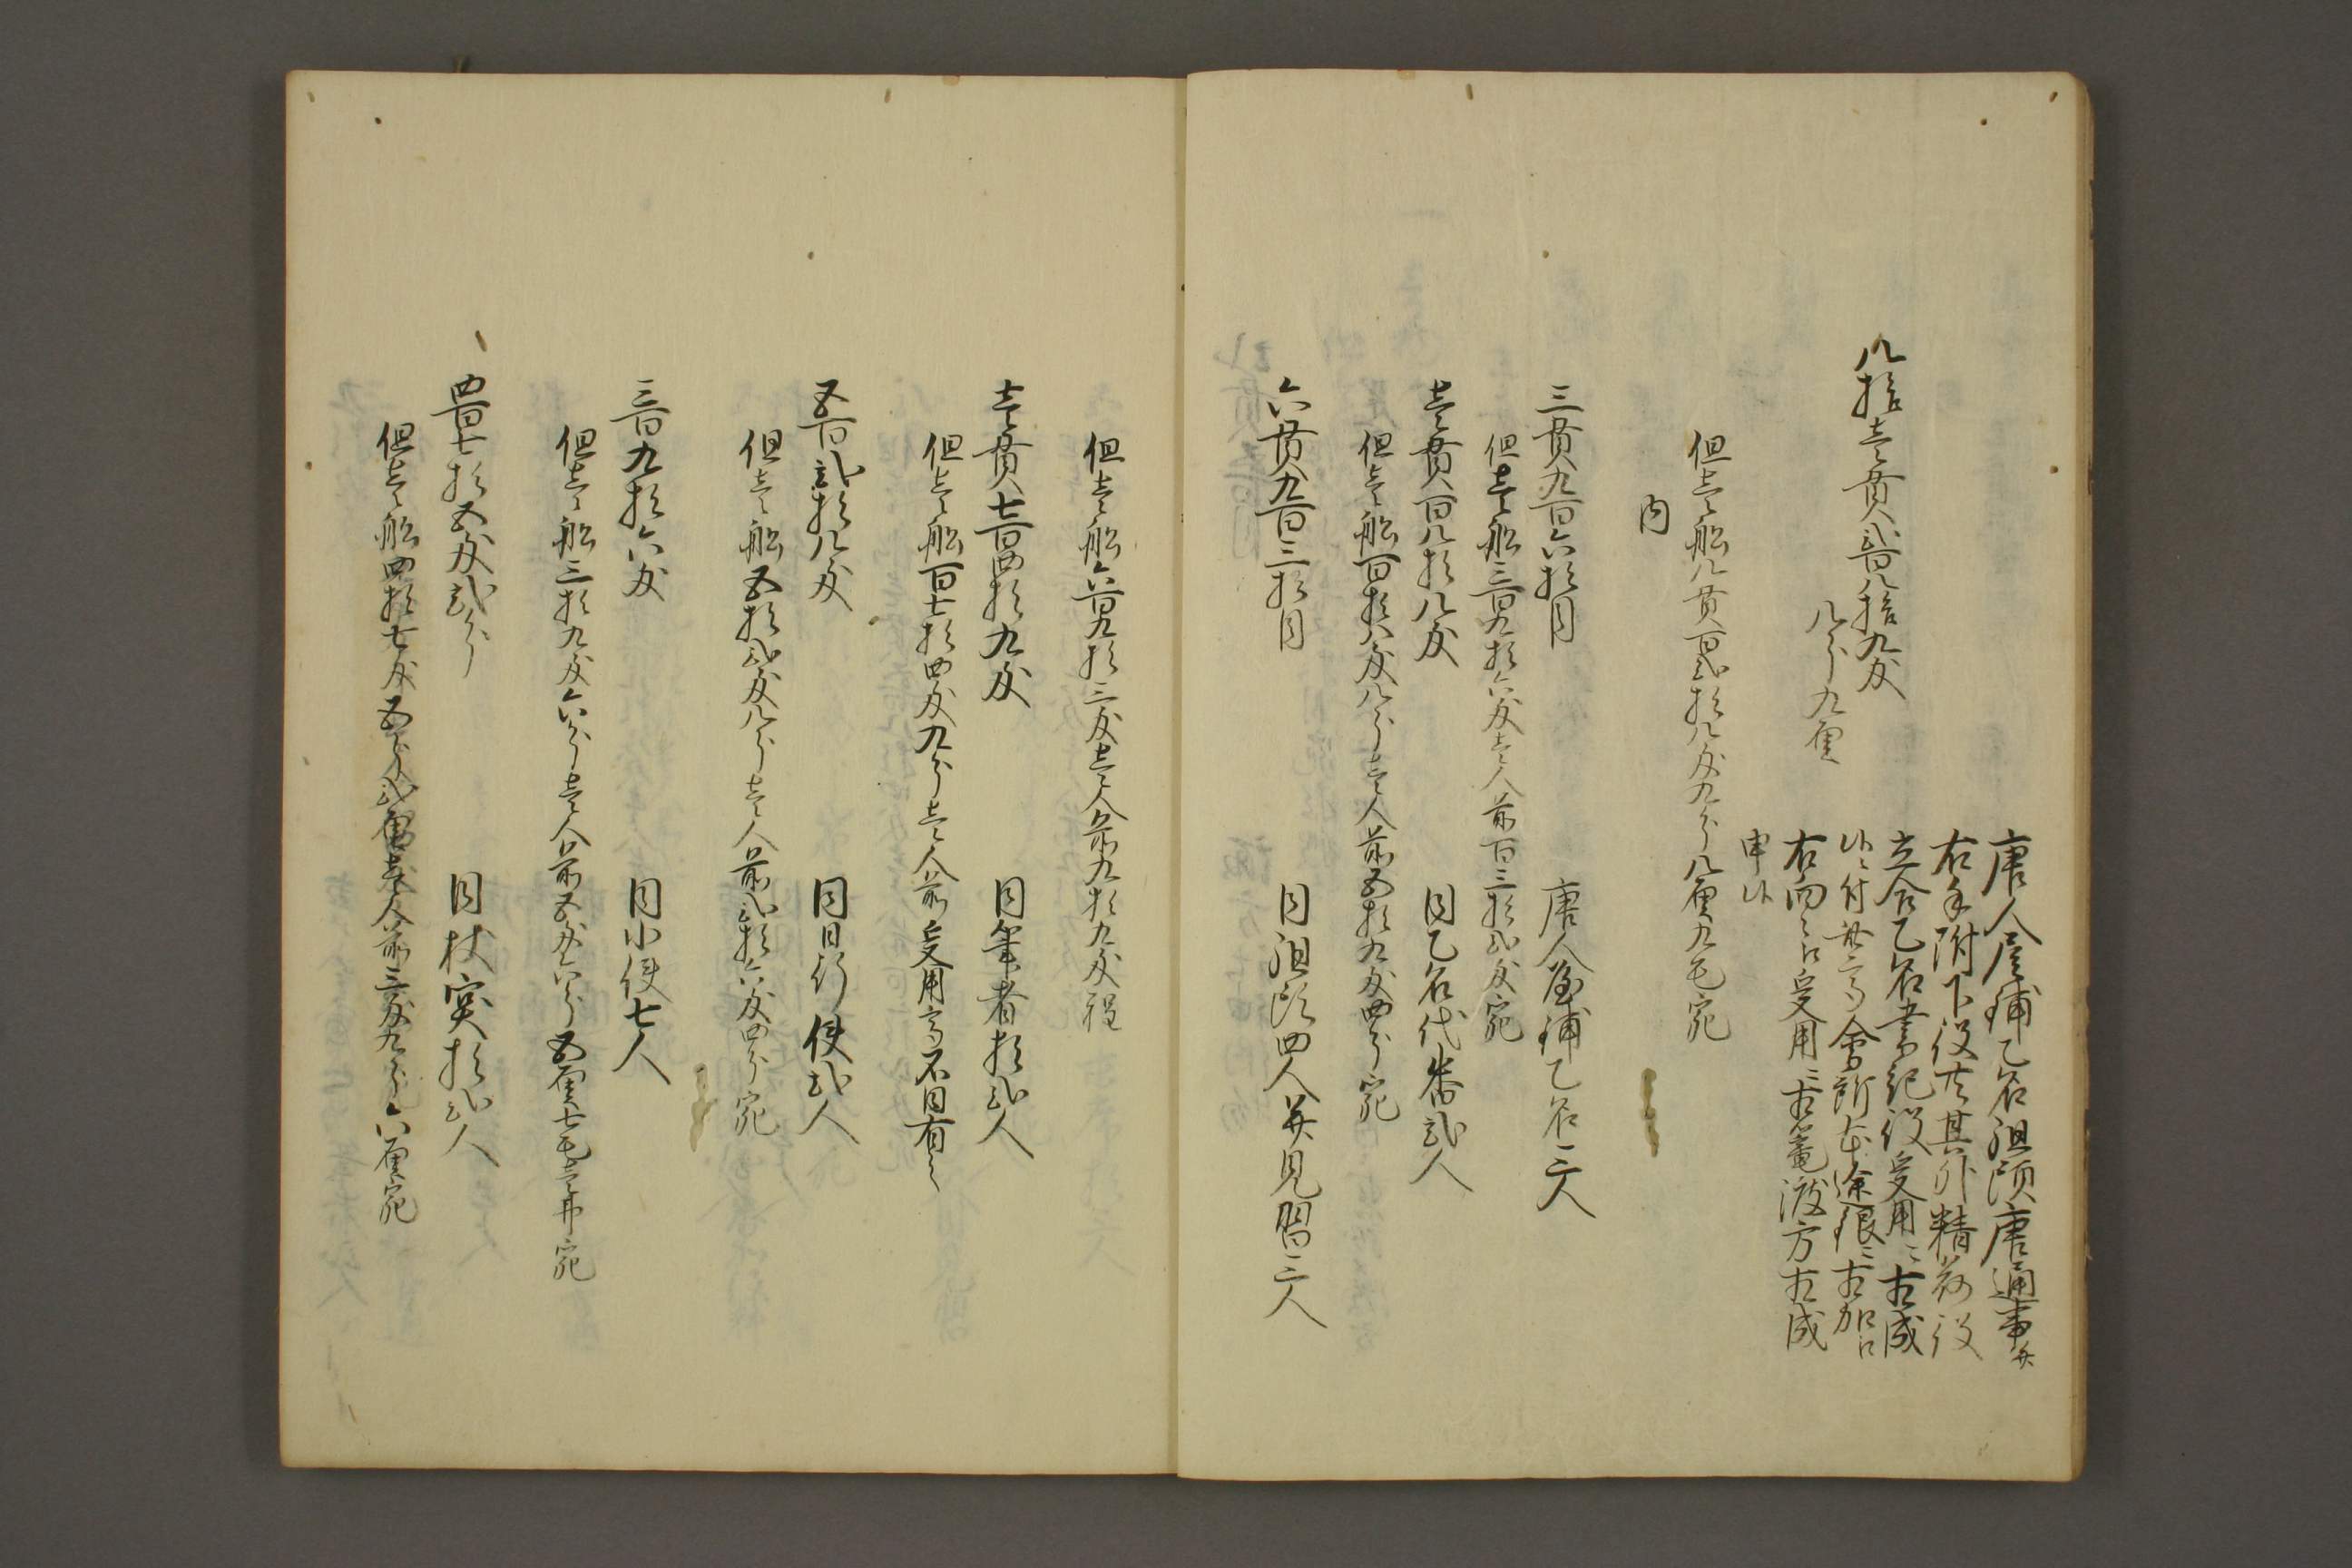 唐人屋鋪乙名組頭唐通事并
右手附下役共其外精荷役
立合乙名書記役受用ニ相成
候ニ付此高会所本途銀ニ相加ヘ
右向々江受用ニ相籠渡方相成
申候
八拾壱貫弐百八拾九匁
八分九厘
但壱船八貫百弐拾八匁九分八厘九毛宛
内
三貫九百六拾目　唐人屋鋪乙名三人
但壱船三百九拾六匁壱人前百三拾弐匁宛
壱貫百八拾八匁　同乙名代番弐人
但壱船百拾八匁八分壱人前五拾九匁四分宛
六貫九百三拾目　同組頭四人并見習三人
但壱船六百九拾三匁壱人前九拾九匁程
壱貫七百四拾九匁　同筆者拾弐人
但壱船百七拾四匁九分壱人前受用高不同有之
五百弐拾八匁　同日行使弐人
但壱船五拾弐匁八分壱人前弐拾六匁四分宛
三百九拾六匁　同小使七人
但壱船三拾九匁六分壱人前五匁六分五厘七毛壱弗宛
四百七拾五匁弐分　同杖突拾弐人
但壱船四拾七匁五分弐厘壱人前三匁九分六厘宛